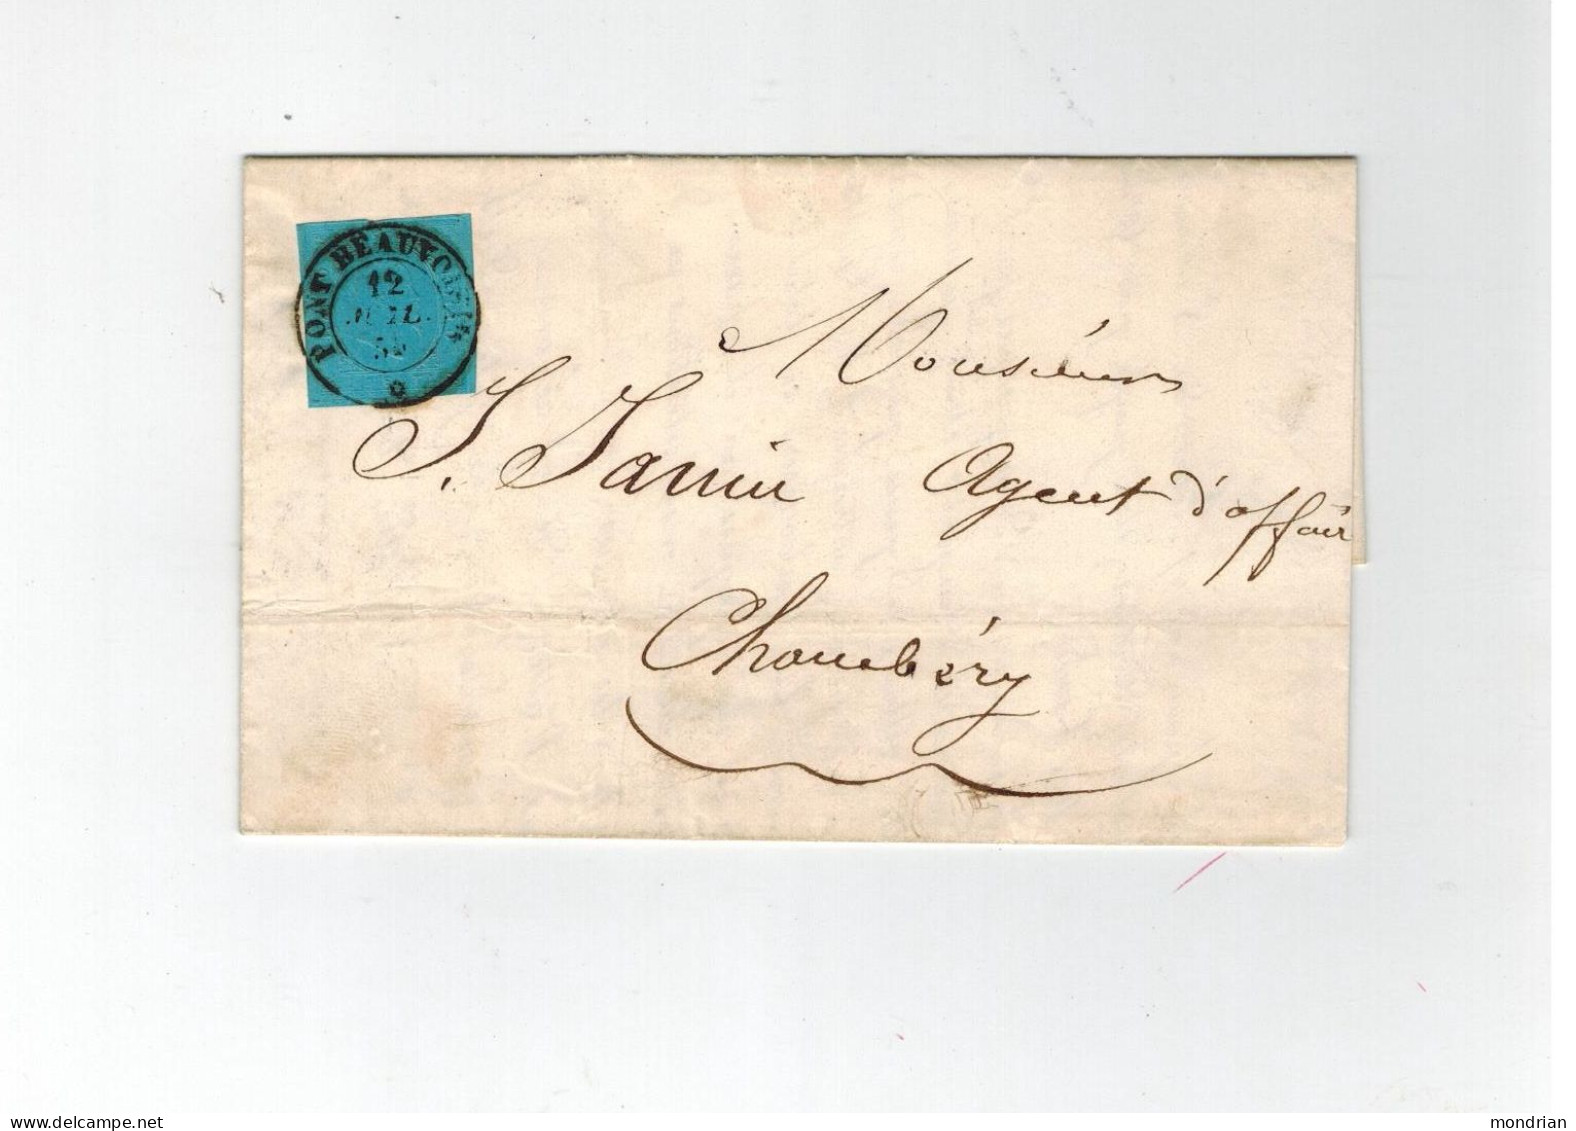 PONT BEAUVOISIN
12
JUIL.
Monsieur
J. Janin Agent d'affair
Chambéry
www.delcampe.net
mondrian